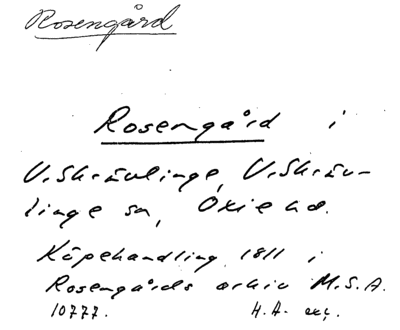 Rosengård
Rosengård i
V. Skrävlinge, V. Skräv-
linge sn, Oxie hd.
Köpehandling 1811 i
Rosengårds arkiv M.S.A.
10777. H.A. exc.